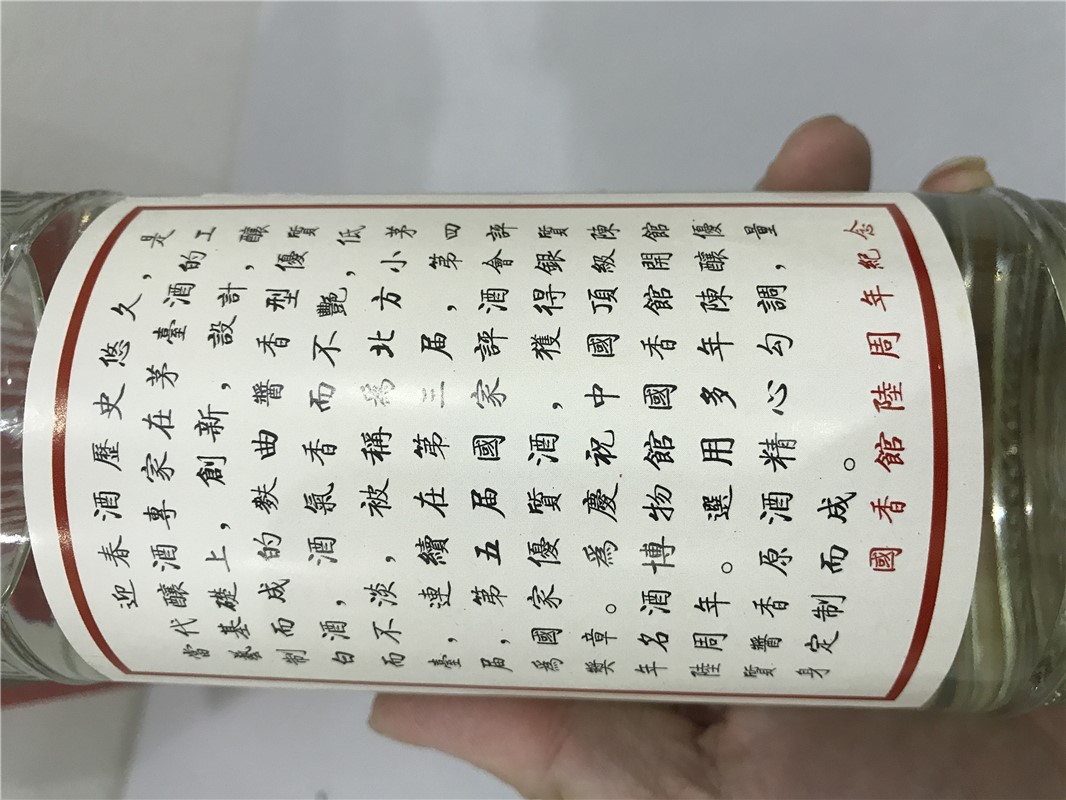 迎春酒歷史悠久，是
當代釀酒專家在茅臺酒的工
藝基礎上，創新，設計，釀
制而成的麩曲醬香型優質
白酒，酒氣香而不艷，低
而不淡，被稱爲北方小茅
臺，連續在第三届，第四
届，第五届國家評酒會評
爲國家優質酒，獲得銀質
獎章。爲慶祝中國頂級陳
年名酒博物館國香館開館
陸周年。選用多年陳釀優
質醬香原酒精心勾調，量
身定制而成。
國香館陸周年紀念